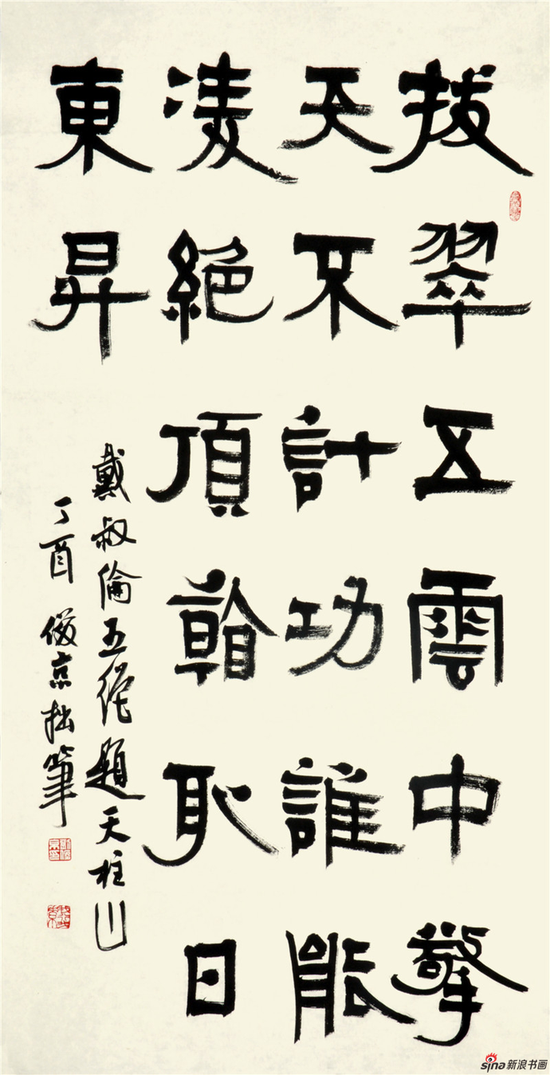 拔翠五雲中擎
天不計功誰能
凌絕頂看取日
東昇
戴叔倫五絕題天柱山
丁酉俊京拙筆
sina新浪书画